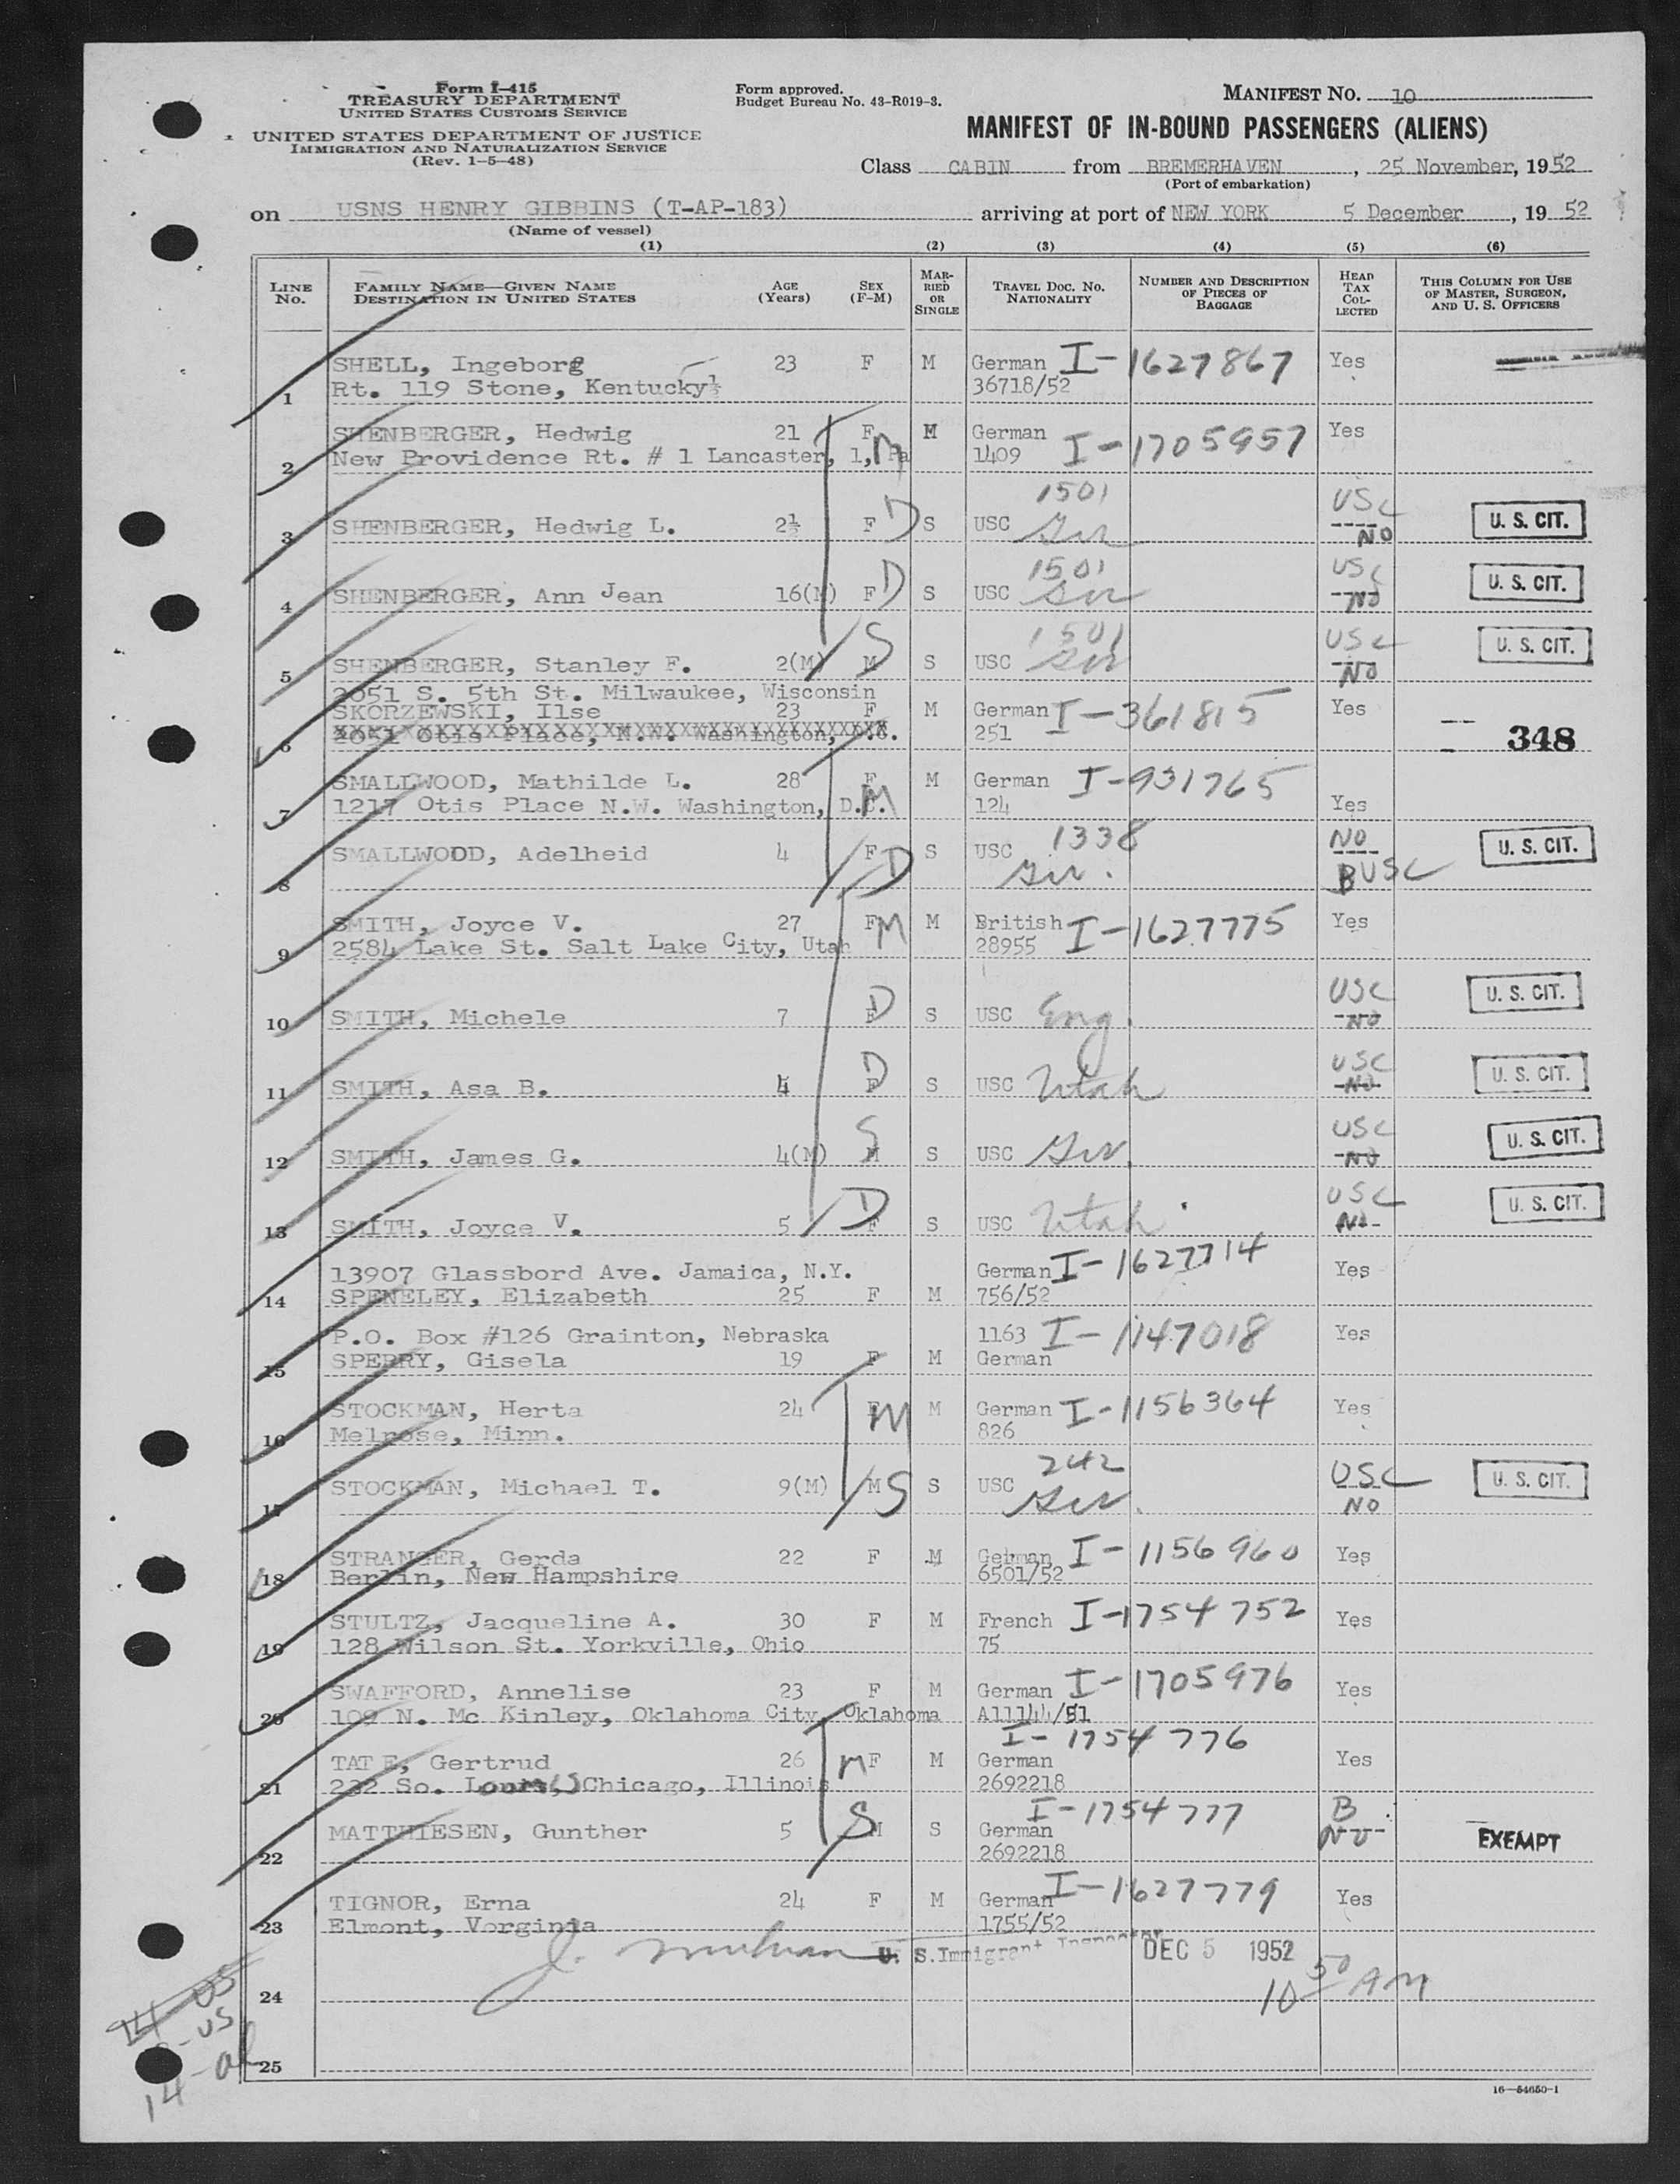 Form I-415
TREASURY DEPARTMENT
UNITED STATES CUSTOMS SERVICE
UNITED STATES DEPARTMENT OF JUSTICE
IMMIGRATION AND NATURALIZATION SERVICE
(Rev. 1-5-48)
Form approved.
Budget Bureau No. 43-R019-3.
MANIFEST NO. 10
MANIFEST OF IN-BOUND PASSENGERS (ALIENS)
Class CABIN from BREMERHAVEN, 25 November, 1952
(Port of embarkation)
on USNS HENRY GIBBINS (T-AP-183) arriving at port of NEW YORK 5 December, 19 52
(Name of vessel)
(1) (2) (3) (4) (5) (6)
LINE No.
FAMILY NAME—GIVEN NAME
DESTINATION IN UNITED STATES
AGE (Years)
SEX (F-M)
MARRIED OR SINGLE
TRAVEL DOC. NO. NATIONALITY
NUMBER AND DESCRIPTION OF PIECES OF BAGGAGE
HEAD TAX COLLECTED
THIS COLUMN FOR USE OF MASTER, SURGEON, AND U. S. OFFICERS
SHELL, Ingeborg 23 F M German I-1627867 Yes
1 Rt. 119 Stone, Kentucky 36718/52
SHENBERGER, Hedwig 21 F M German I-1705957 Yes
2 New Providence Rt. # 1 Lancaster, 1, Pa M 1409
1501 USC
3 SHENBERGER, Hedwig L. 2½ F D S USC Ger NO U. S. CIT.
1501 USC
4 SHENBERGER, Ann Jean 16(M) F D S USC Ger NO U. S. CIT.
1501 USC
5 SHENBERGER, Stanley F. 2(M) M S S USC Ger NO U. S. CIT.
2051 S. 5th St. Milwaukee, Wisconsin
SKORZEWSKI, Ilse 23 F M German I-361815 Yes
6 2051 Otis Place, N.W. Washington, D.C. 251 348
SMALLWOOD, Mathilde L. 28 F M German I-931765
7 1217 Otis Place N.W. Washington, D.C. M 124 Yes
1338 NO
SMALLWOOD, Adelheid 4 F D S USC Ger. B USC U. S. CIT.
8
SMITH, Joyce V. 27 F M M British I-1627775 Yes
9 2584 Lake St. Salt Lake City, Utah 28955
USC
10 SMITH, Michele 7 F D S USC Eng. NO U. S. CIT.
USC
11 SMITH, Asa B. F D S USC Utah NO U. S. CIT.
USC
12 SMITH, James G. 4(M) M S S USC Ger. NO U. S. CIT.
USC
13 SMITH, Joyce V. 5 F D S USC Utah No U. S. CIT.
13907 Glassbord Ave. Jamaica, N.Y. German I-1627714 Yes
14 SPENELEY, Elizabeth 25 F M 756/52
P.O. Box #126 Grainton, Nebraska 1163 I-1147018 Yes
15 SPERRY, Gisela 19 F M German
STOCKMAN, Herta 24 F M M German I-1156364 Yes
16 Melrose, Minn. 826
242
STOCKMAN, Michael T. 9(M) M S S USC Ger. USC U. S. CIT.
17 NO
STRANGER, Gerda 22 F M German I-1156960 Yes
18 Berlin, New Hampshire 6501/52
STULTZ, Jacqueline A. 30 F M French I-1754752 Yes
19 128 Wilson St. Yorkville, Ohio 75
SWAFFORD, Annelise 23 F M German I-1705976 Yes
20 109 N. Mc Kinley, Oklahoma City, Oklahoma A11144/51
I-1754776
TATE, Gertrud 26 M F M German Yes
21 232 So. Loomis Chicago, Illinois 2692218
I-1754777 B
MATTHIESEN, Gunther 5 M S S German NO EXEMPT
22 2692218
TIGNOR, Erna 24 F M German I-1627779 Yes
23 Elmont, Vorginia 1755/52
J. U. S. Immigrant Inspector DEC 5 1952
10 50 AM
24
14-US
-US
25
14-al
16-54650-1